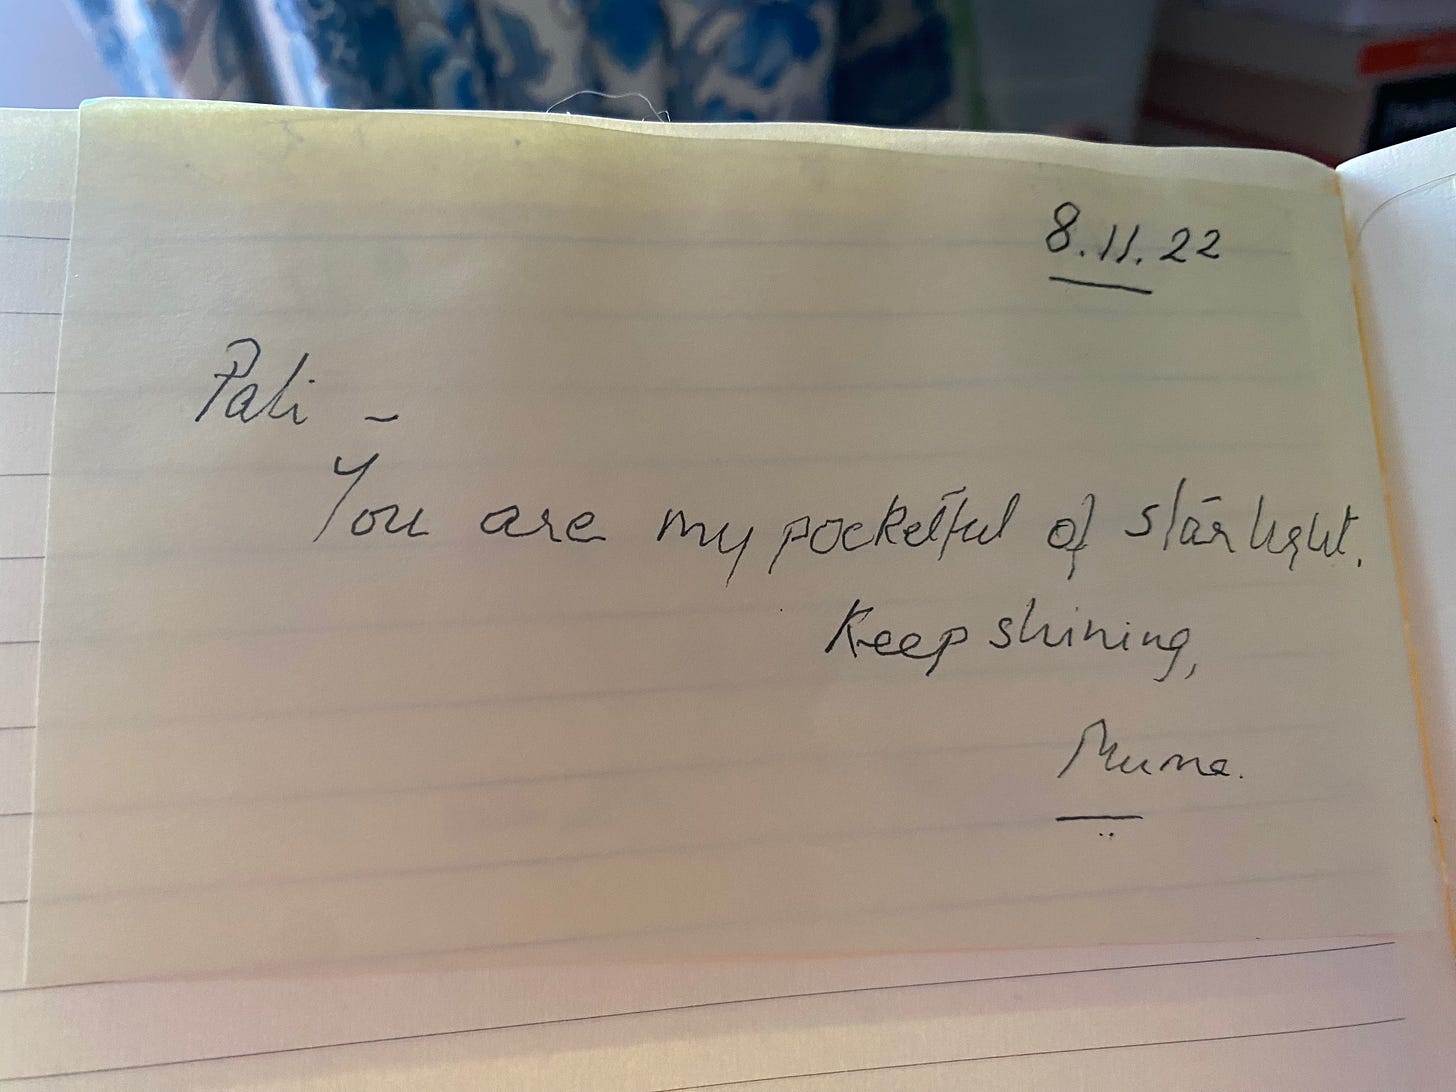 8.11.22
Pali –
You are my pocketful of starlight.
Keep shining,
Muma.